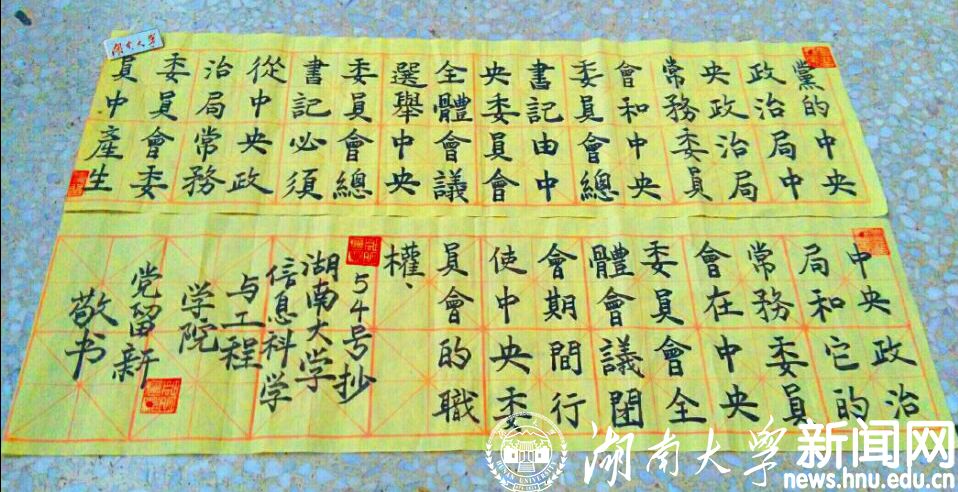 湖南大学
黨的中央
政治局中
央政治局
常務委員
會和中央
委員會總
書記由中
央委員會
全體會議
選舉中央
委員會總
書記必須
從中央政
治局常務
委員會委
員中產生
中央政治
局和它的
常務委員
會在中央
委員會全
體會議閉
會期間行
使中央委
員會的職
權、
54号抄
湖南大学
信息科学
与工程
学院
党留新
敬书
湖南大学 新闻网
news.hnu.edu.cn